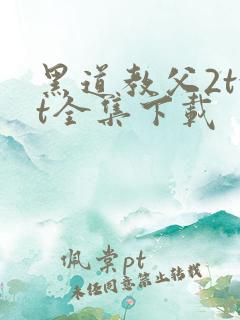 黑道教父2tx
t全集下载
佩棠pt
未经同意禁止转载